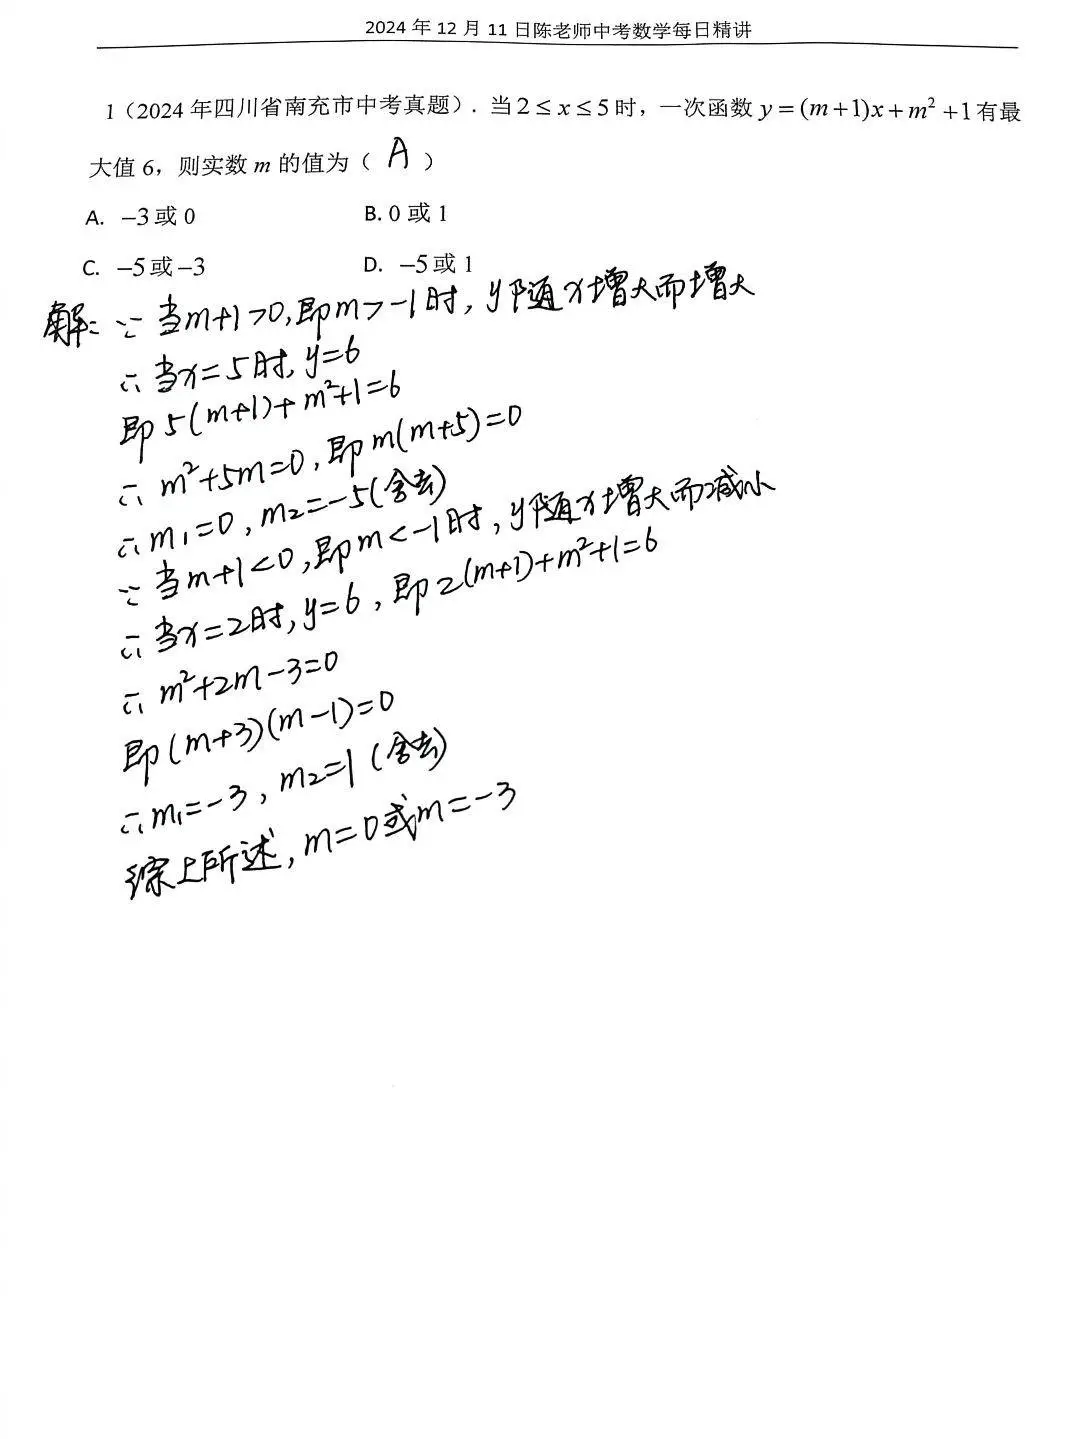 2024 年 12 月 11 日陈老师中考数学每日精讲
1（2024 年四川省南充市中考真题）. 当 2≤x≤5 时，一次函数 y=(m+1)x+m²+1 有最
大值 6，则实数 m 的值为（ A ）
A. −3 或 0 B. 0 或 1
C. −5 或 −3 D. −5 或 1
解: ∵ 当m+1>0,即m>-1时, y随x增大而增大
∴ 当x=5时, y=6
即 5(m+1)+m²+1=6
∴ m²+5m=0, 即 m(m+5)=0
∴ m₁=0, m₂=-5(舍去)
∵ 当m+1<0,即m<-1时, y随x增大而减小
∴ 当x=2时, y=6, 即 2(m+1)+m²+1=6
∴ m²+2m-3=0
即 (m+3)(m-1)=0
∴ m₁=-3, m₂=1 (舍去)
综上所述, m=0或m=-3